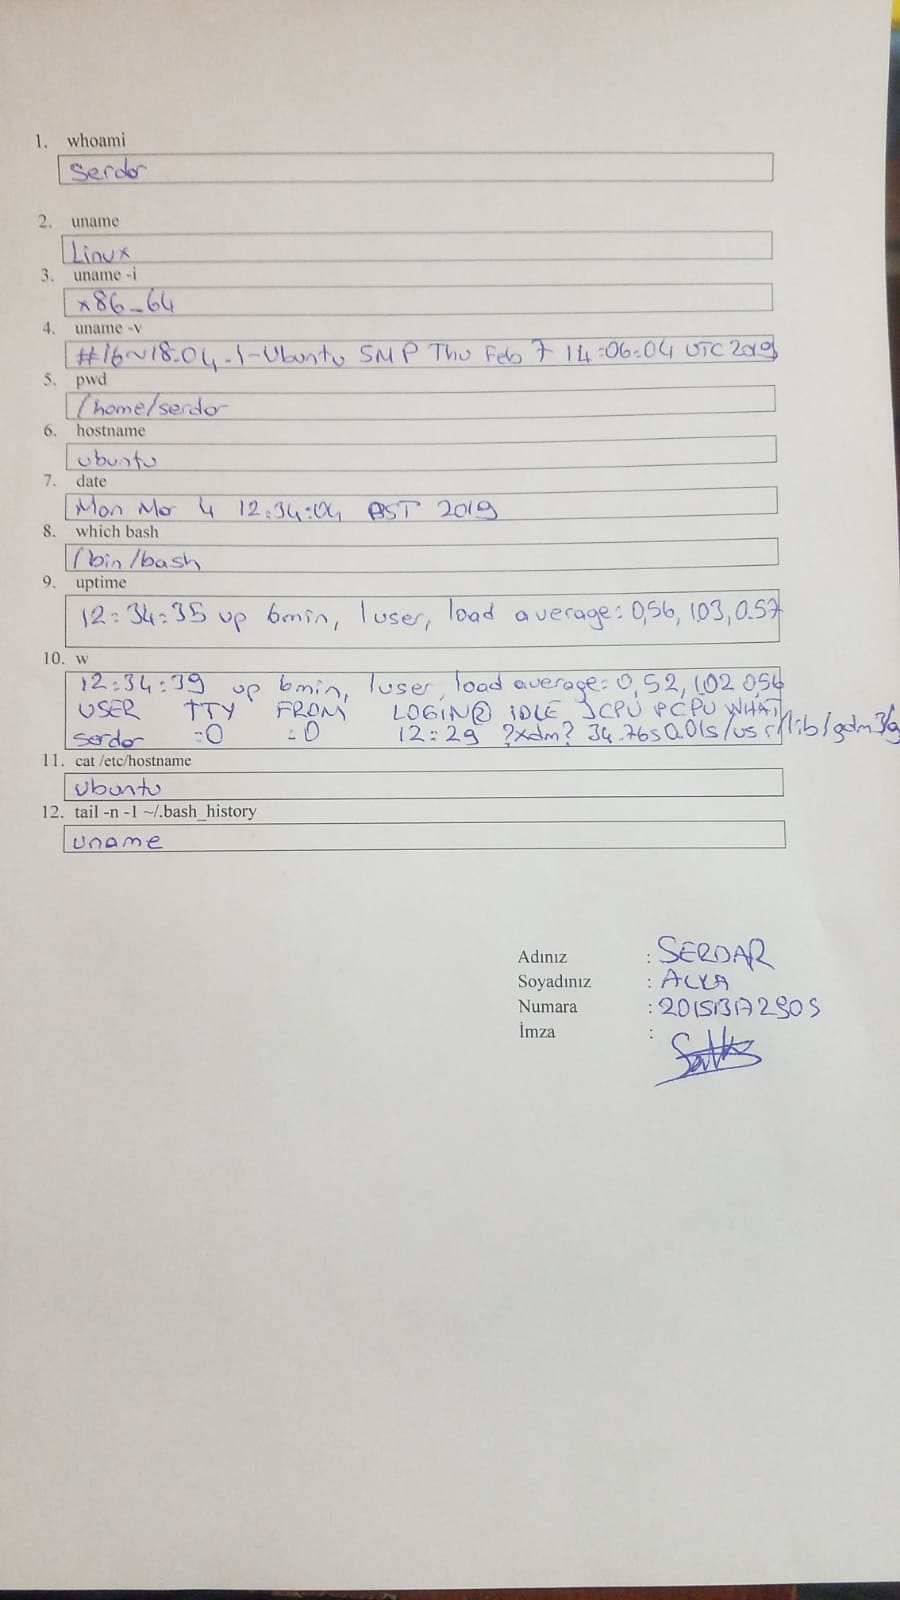 1. whoami
serdar
2. uname
Linux
3. uname -i
x86_64
4. uname -v
#16~18.04.1-Ubuntu SMP Thu Feb 7 14:06:04 UTC 2019
5. pwd
/home/serdar
6. hostname
ubuntu
7. date
Mon Mar 4 12:34:04 PST 2019
8. which bash
/bin/bash
9. uptime
12:34:35 up 6min, 1user, load average: 0,56, 1.03, 0.57
10. w
12:34:39 up 6min, 1user, load average: 0,52, 1,02 0,56
USER TTY FROM LOGIN@ IDLE JCPU PCPU WHAT
serdar :0 :0 12:29 ?xdm? 34.76s 0.01s /usr/lib/gdm3/g
11. cat /etc/hostname
ubuntu
12. tail -n -1 ~/.bash_history
uname
Adınız : SERDAR
Soyadınız :
Numara :
İmza :